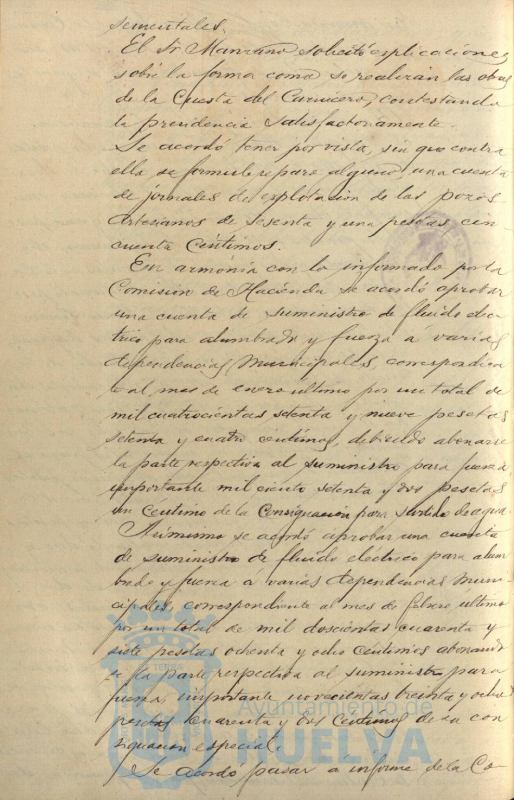 sementales.
El Sr Manzano solicitó explicaciones
sobre la forma como se realizan las obras
de la Cuesta del Carnicero, contestando
la presidencia satisfactoriamente.
Se acordó tener por vista, sin que contra
ella se formule reparo alguno, una cuenta
de jornales de explotación de los pozos
Artesianos de sesenta y una pesetas, cin
cuenta Céntimos.
En armonía con lo informado por la
Comisión de Hacienda se acordó aprobar
una cuenta de suministro de fluido elec
trico para alumbrado y fuerza a varias
dependencias Municipales, correspondien
te al mes de enero ultimo por un total de
mil cuatrocientas setenta y nueve pesetas
setenta y cuatro centimos, debiendo abonarse
la parte respectiva al suministro para fuerza
importante mil ciento setenta y dos pesetas
un Centimo de la Consignación para surtido de agua.
Asimismo se acordó aprobar una cuenta
de suministro de fluido eléctrico para alum
brado y fuerza a varias dependencias Muni
cipales, correspondiente al mes de febrero ultimo
por un total de mil doscientas cuarenta y
siete pesetas ochenta y ocho Centimos abonando
se la parte respectiva al suministro para
fuerza, importante novecientas treinta y ocho
pesetas Cuarenta y dos Centimos de su con
signación especial.
Se acordó pasar a informe de la Co-
Ayuntamiento de
HUELVA